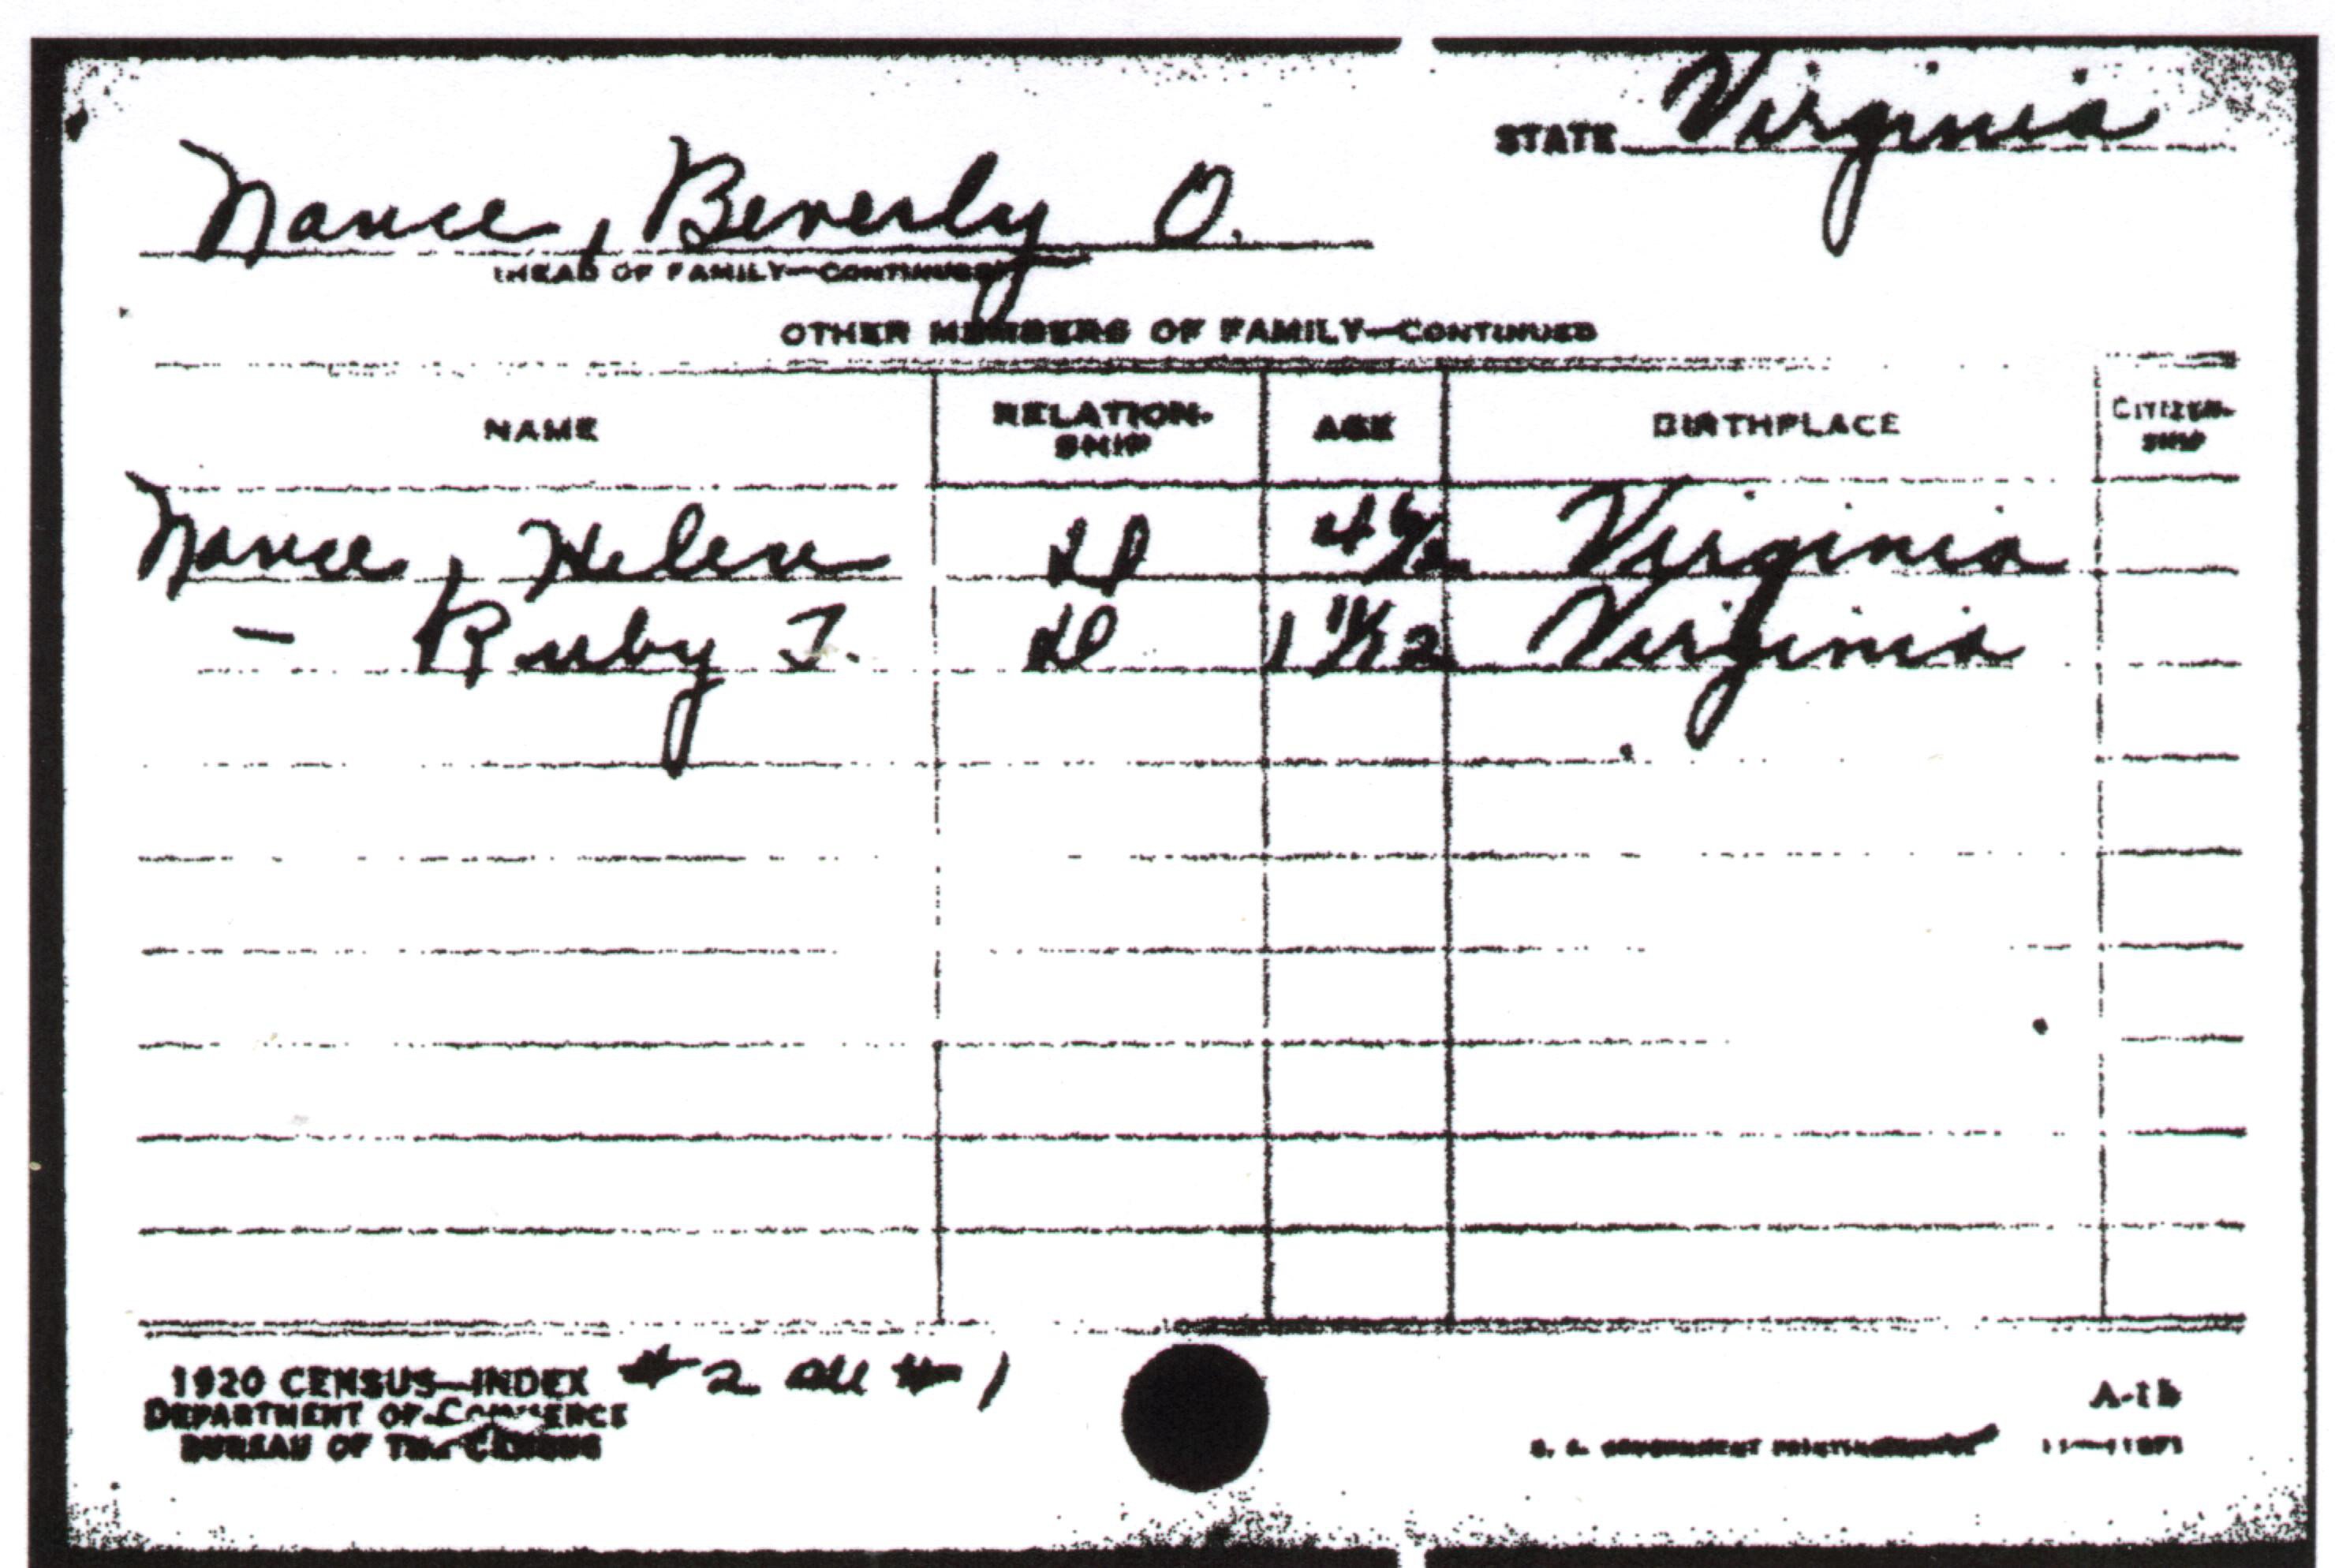 STATE Virginia
Nance, Beverly O.
(HEAD OF FAMILY—CONTINUED)
OTHER MEMBERS OF FAMILY—CONTINUED
NAME RELATION-SHIP AGE BIRTHPLACE CITIZEN-SHIP
Nance, Helen D 4 Virginia
— Ruby J. D 1 11/12 Virginia
1920 CENSUS—INDEX #2 all #1
DEPARTMENT OF COMMERCE
BUREAU OF THE CENSUS
A-1b
U. S. GOVERNMENT PRINTING OFFICE